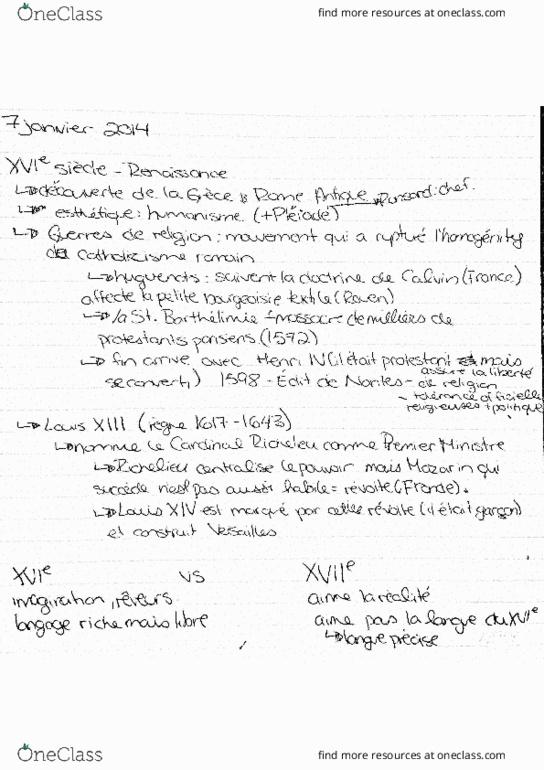 OneClass
find more resources at oneclass.com
7 janvier 2014
XVIe siècle - Renaissance
↳ découverte de la Grèce & Rome Antique Ronsard: chef.
↳ esthétique: humanisme (+Pléiade)
↳ Guerres de religion: mouvement qui a rupturé l'homogénity
du Catholicisme romain
↳ huguenots: suivent la doctrine de Calvin (France)
affecte la petite bourgeoisie textile (Rouen)
↳ la St. Barthélimie massacre de milliers de
protestants parisiens (1572)
↳ fin arrive avec Henri IV (il était protestant mais
se converti) 1598 - Édit de Nantes - assure la liberté
de religion
- tolérance officielle
religieuses + politique
↳ Louis XIII (règne 1617-1643)
↳ nomme le Cardinal Richelieu comme Premier Ministre
↳ Richelieu centralise le pouvoir mais Mazarin qui
succède n'est pas aussi habile = révolte (Fronde).
↳ Louis XIV est marqué par cette révolte (il était garçon)
et construit Versailles
XVIe vs XVIIe
imagination, rêveurs aime la réalité
langage riche mais libre aime pas la langue du XVIe
↳ langue précise
OneClass
find more resources at oneclass.com